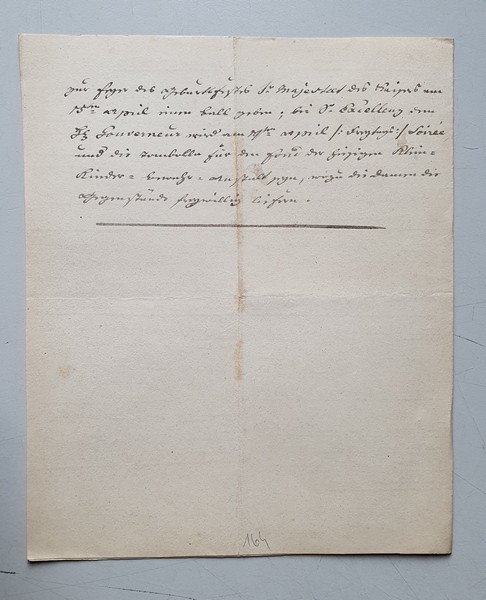 zur Feyer des Geburtsfestes Sr Majestät des Kaisers am
19ten April einen Ball geben; bei Sr Excellenz dem
H. Gouverneur wird am ten April /: Freytags :/ Soirée
und die Tombolla für den Fond der hiesigen Klein-
Kinder- Bewahr- Anstalt seyn, wozu die Damen die
Gegenstände freywillig liefern.
164